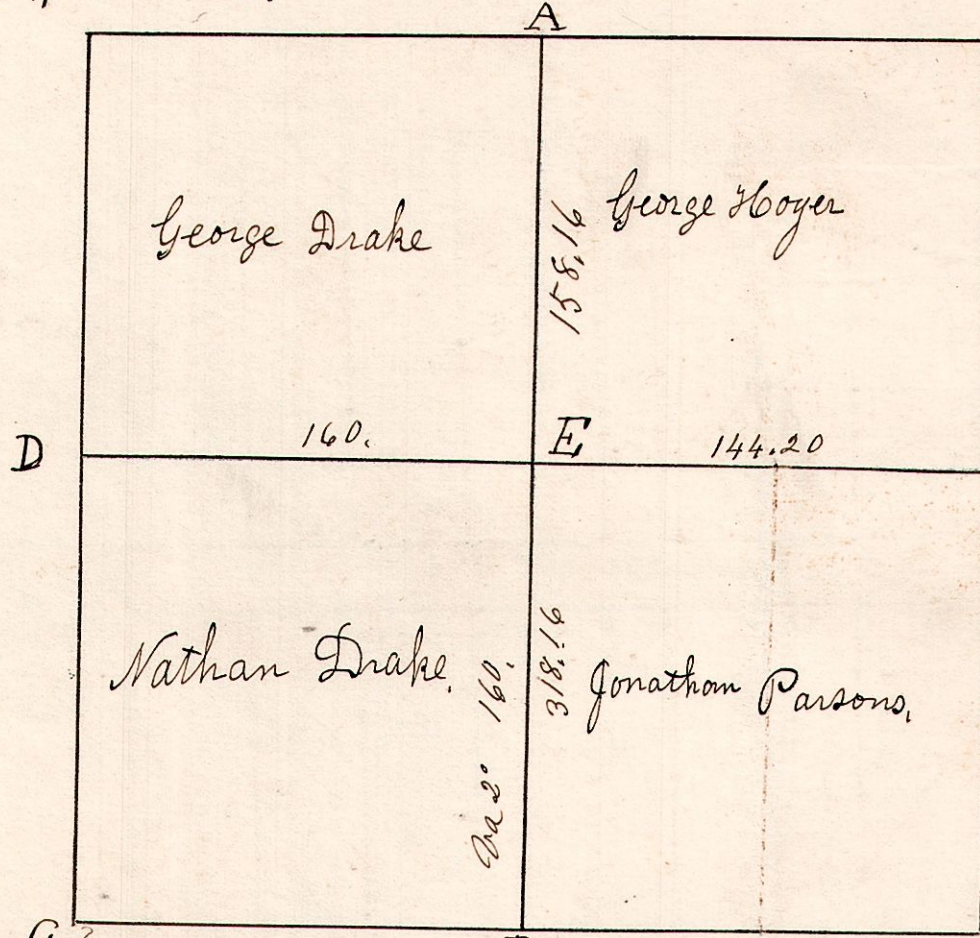 A
George Drake
158.16
George Hoyer
D
160.
E
144.20
Nathan Drake.
Va 2° 160.
318.16
Jonathan Parsons.